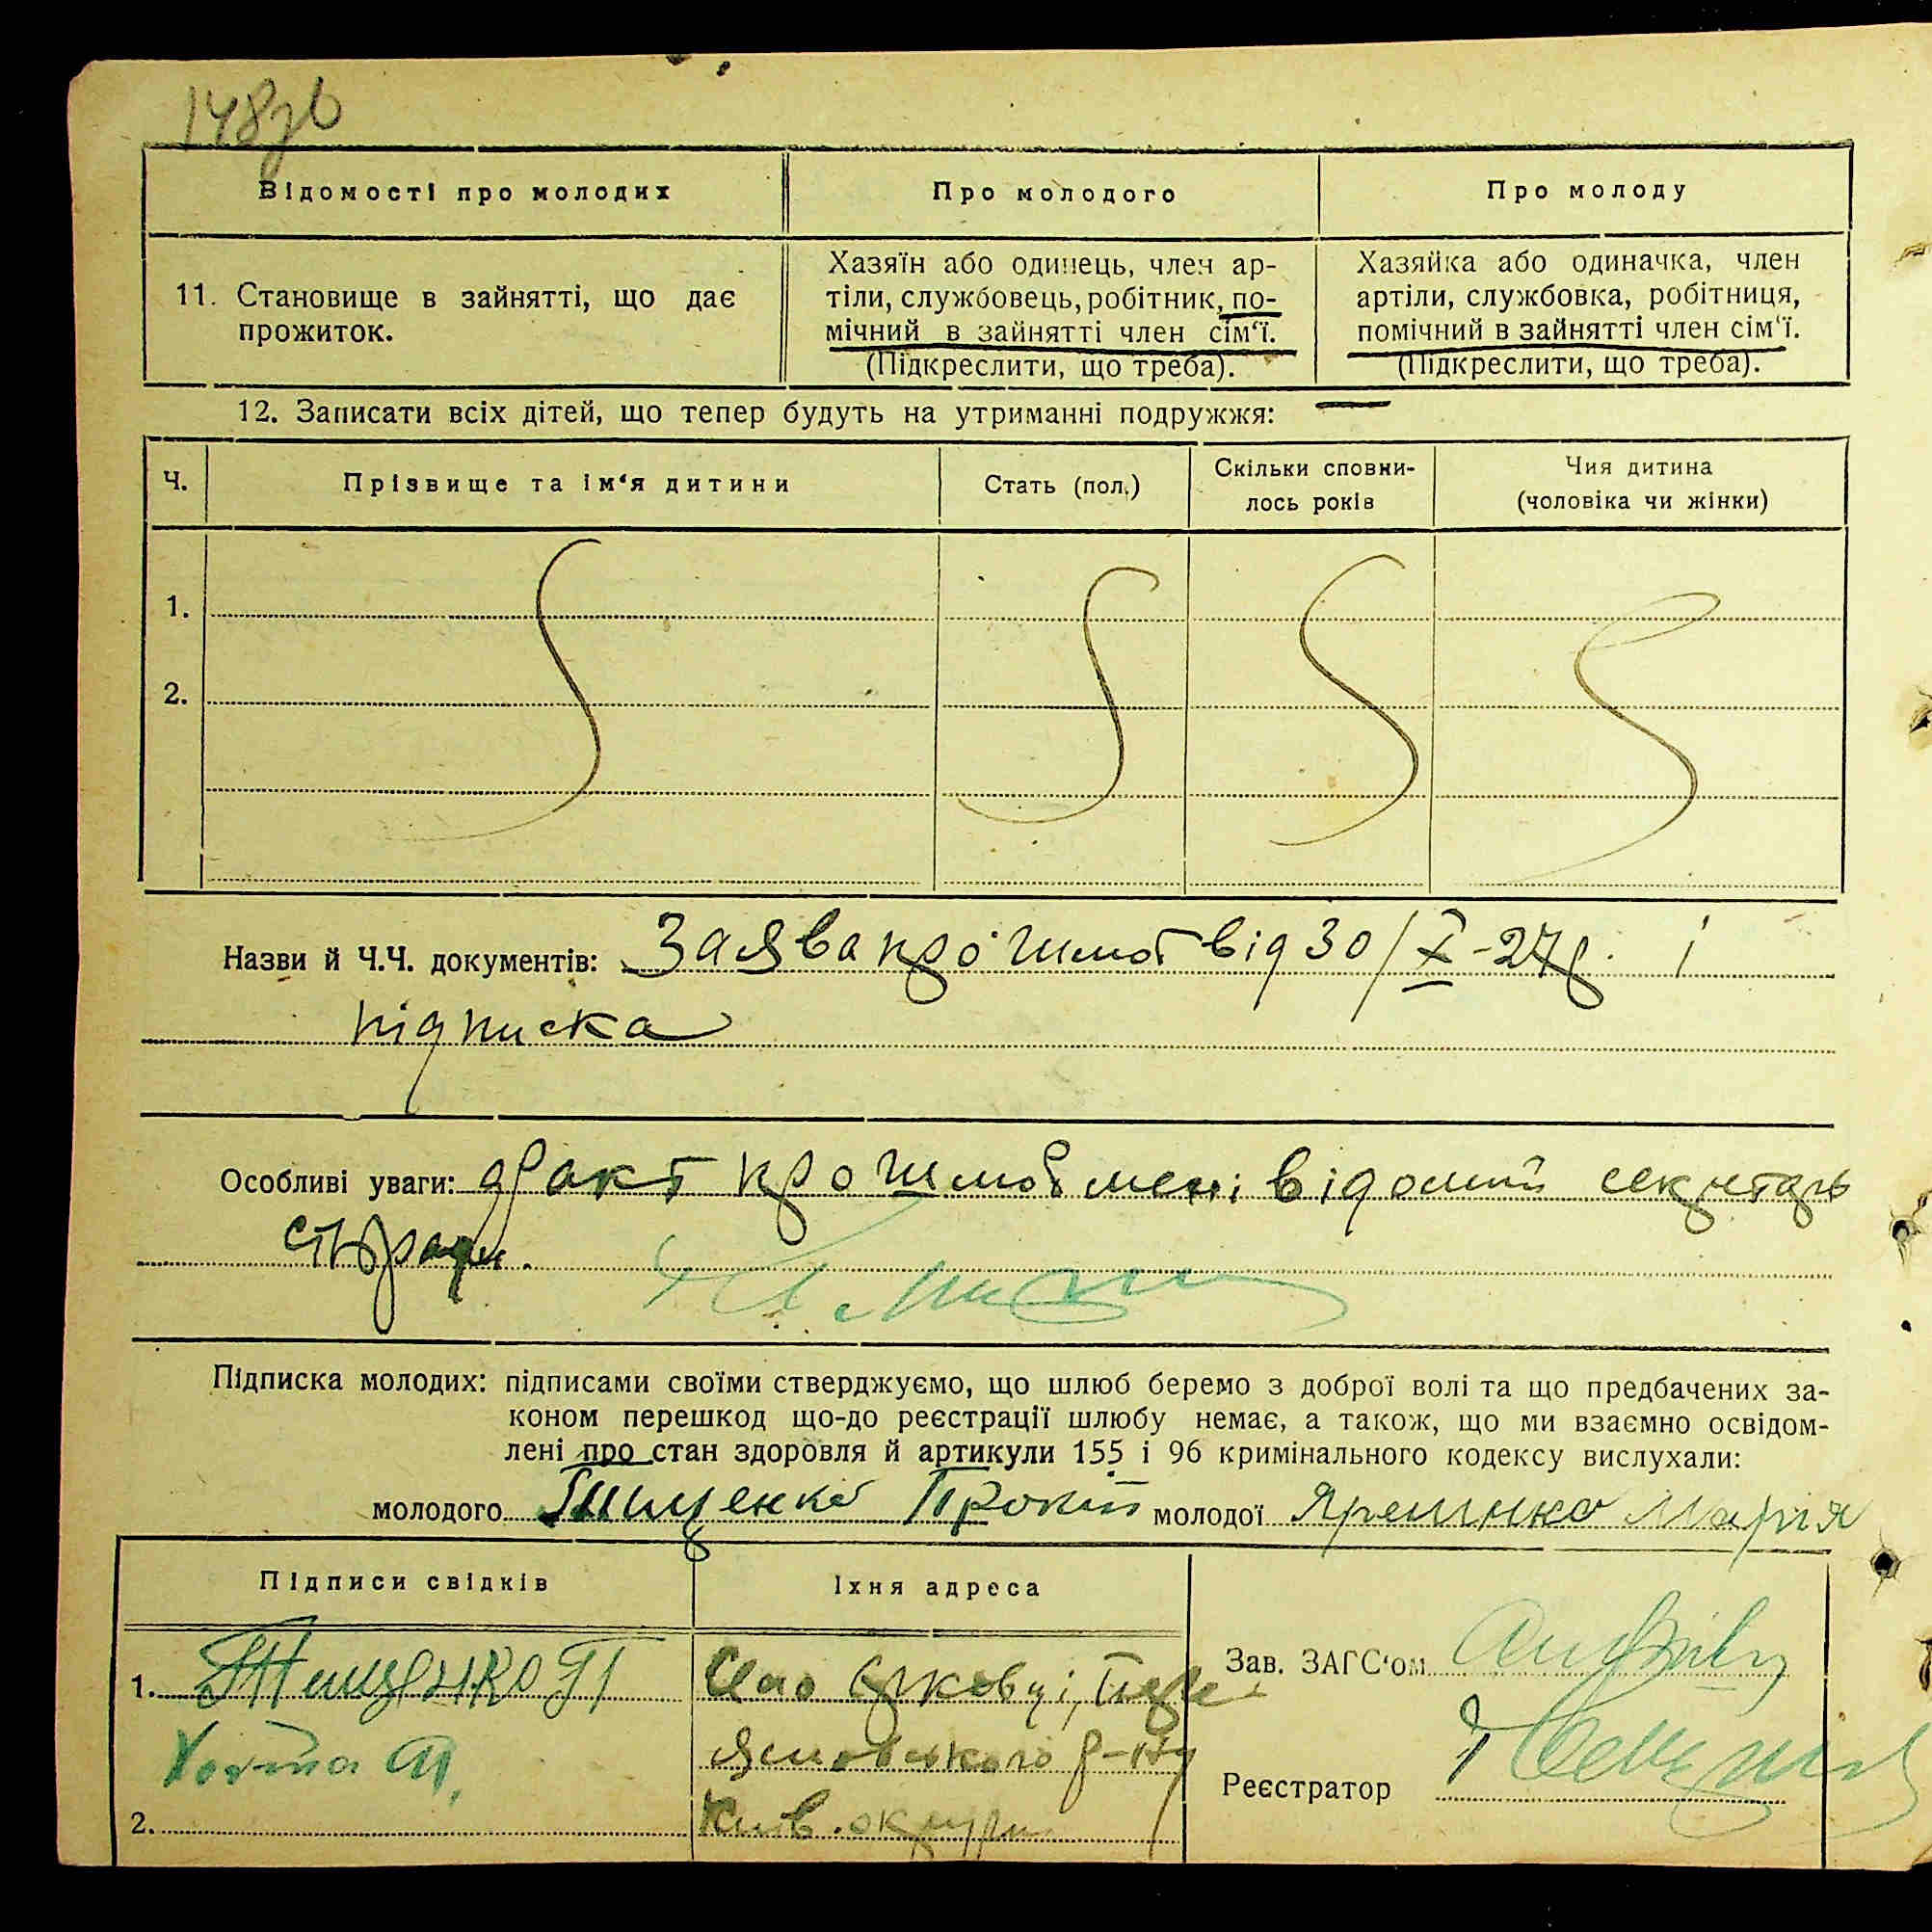 148зв
Відомості про молодих
Про молодого
Про молоду
11. Становище в зайнятті, що дає
прожиток.
Хазяїн або одинець, член ар-
тіли, службовець, робітник, по-
мічний в зайнятті член сім‘ї.
(Підкреслити, що треба).
Хазяйка або одиначка, член
артіли, службовка, робітниця,
помічний в зайнятті член сім‘ї.
(Підкреслити, що треба).
12. Записати всіх дітей, що тепер будуть на утриманні подружжя: —
Ч.
Прізвище та ім‘я дитини
Стать (пол.)
Скільки сповни-
лось років
Чия дитина
(чоловіка чи жінки)
1.
2.
Назви й Ч.Ч. документів: Заява про шлюб від 30/X-27р. і
підписка
Особливі уваги: факт про шлюб мені відомий секретарь
с
Підписка молодих: підписами своїми стверджуємо, що шлюб беремо з доброї волі та що предбачених за-
коном перешкод що-до реєстрації шлюбу немає, а також, що ми взаємно освідом-
лені про стан здоровля й артикули 155 і 96 кримінального кодексу вислухали:
молодого Тищенко Прокіп молодої Яременко Марія
Підписи свідків
Їхня адреса
1. Тищенко П
Село
р-ну
2.
Київ. округи
Зав. ЗАГС‘ом
Реєстратор